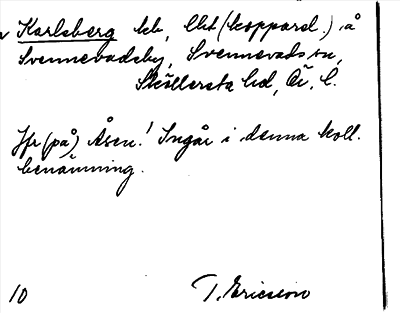 Karlsberg lht, (koppard.) å
Svennevadsby, Svennevads sn,
Sköllersta hd, Ör. l.
Jfr (på) Åsen! Ingår i denna koll.
benämning.
10 T. Ericsson